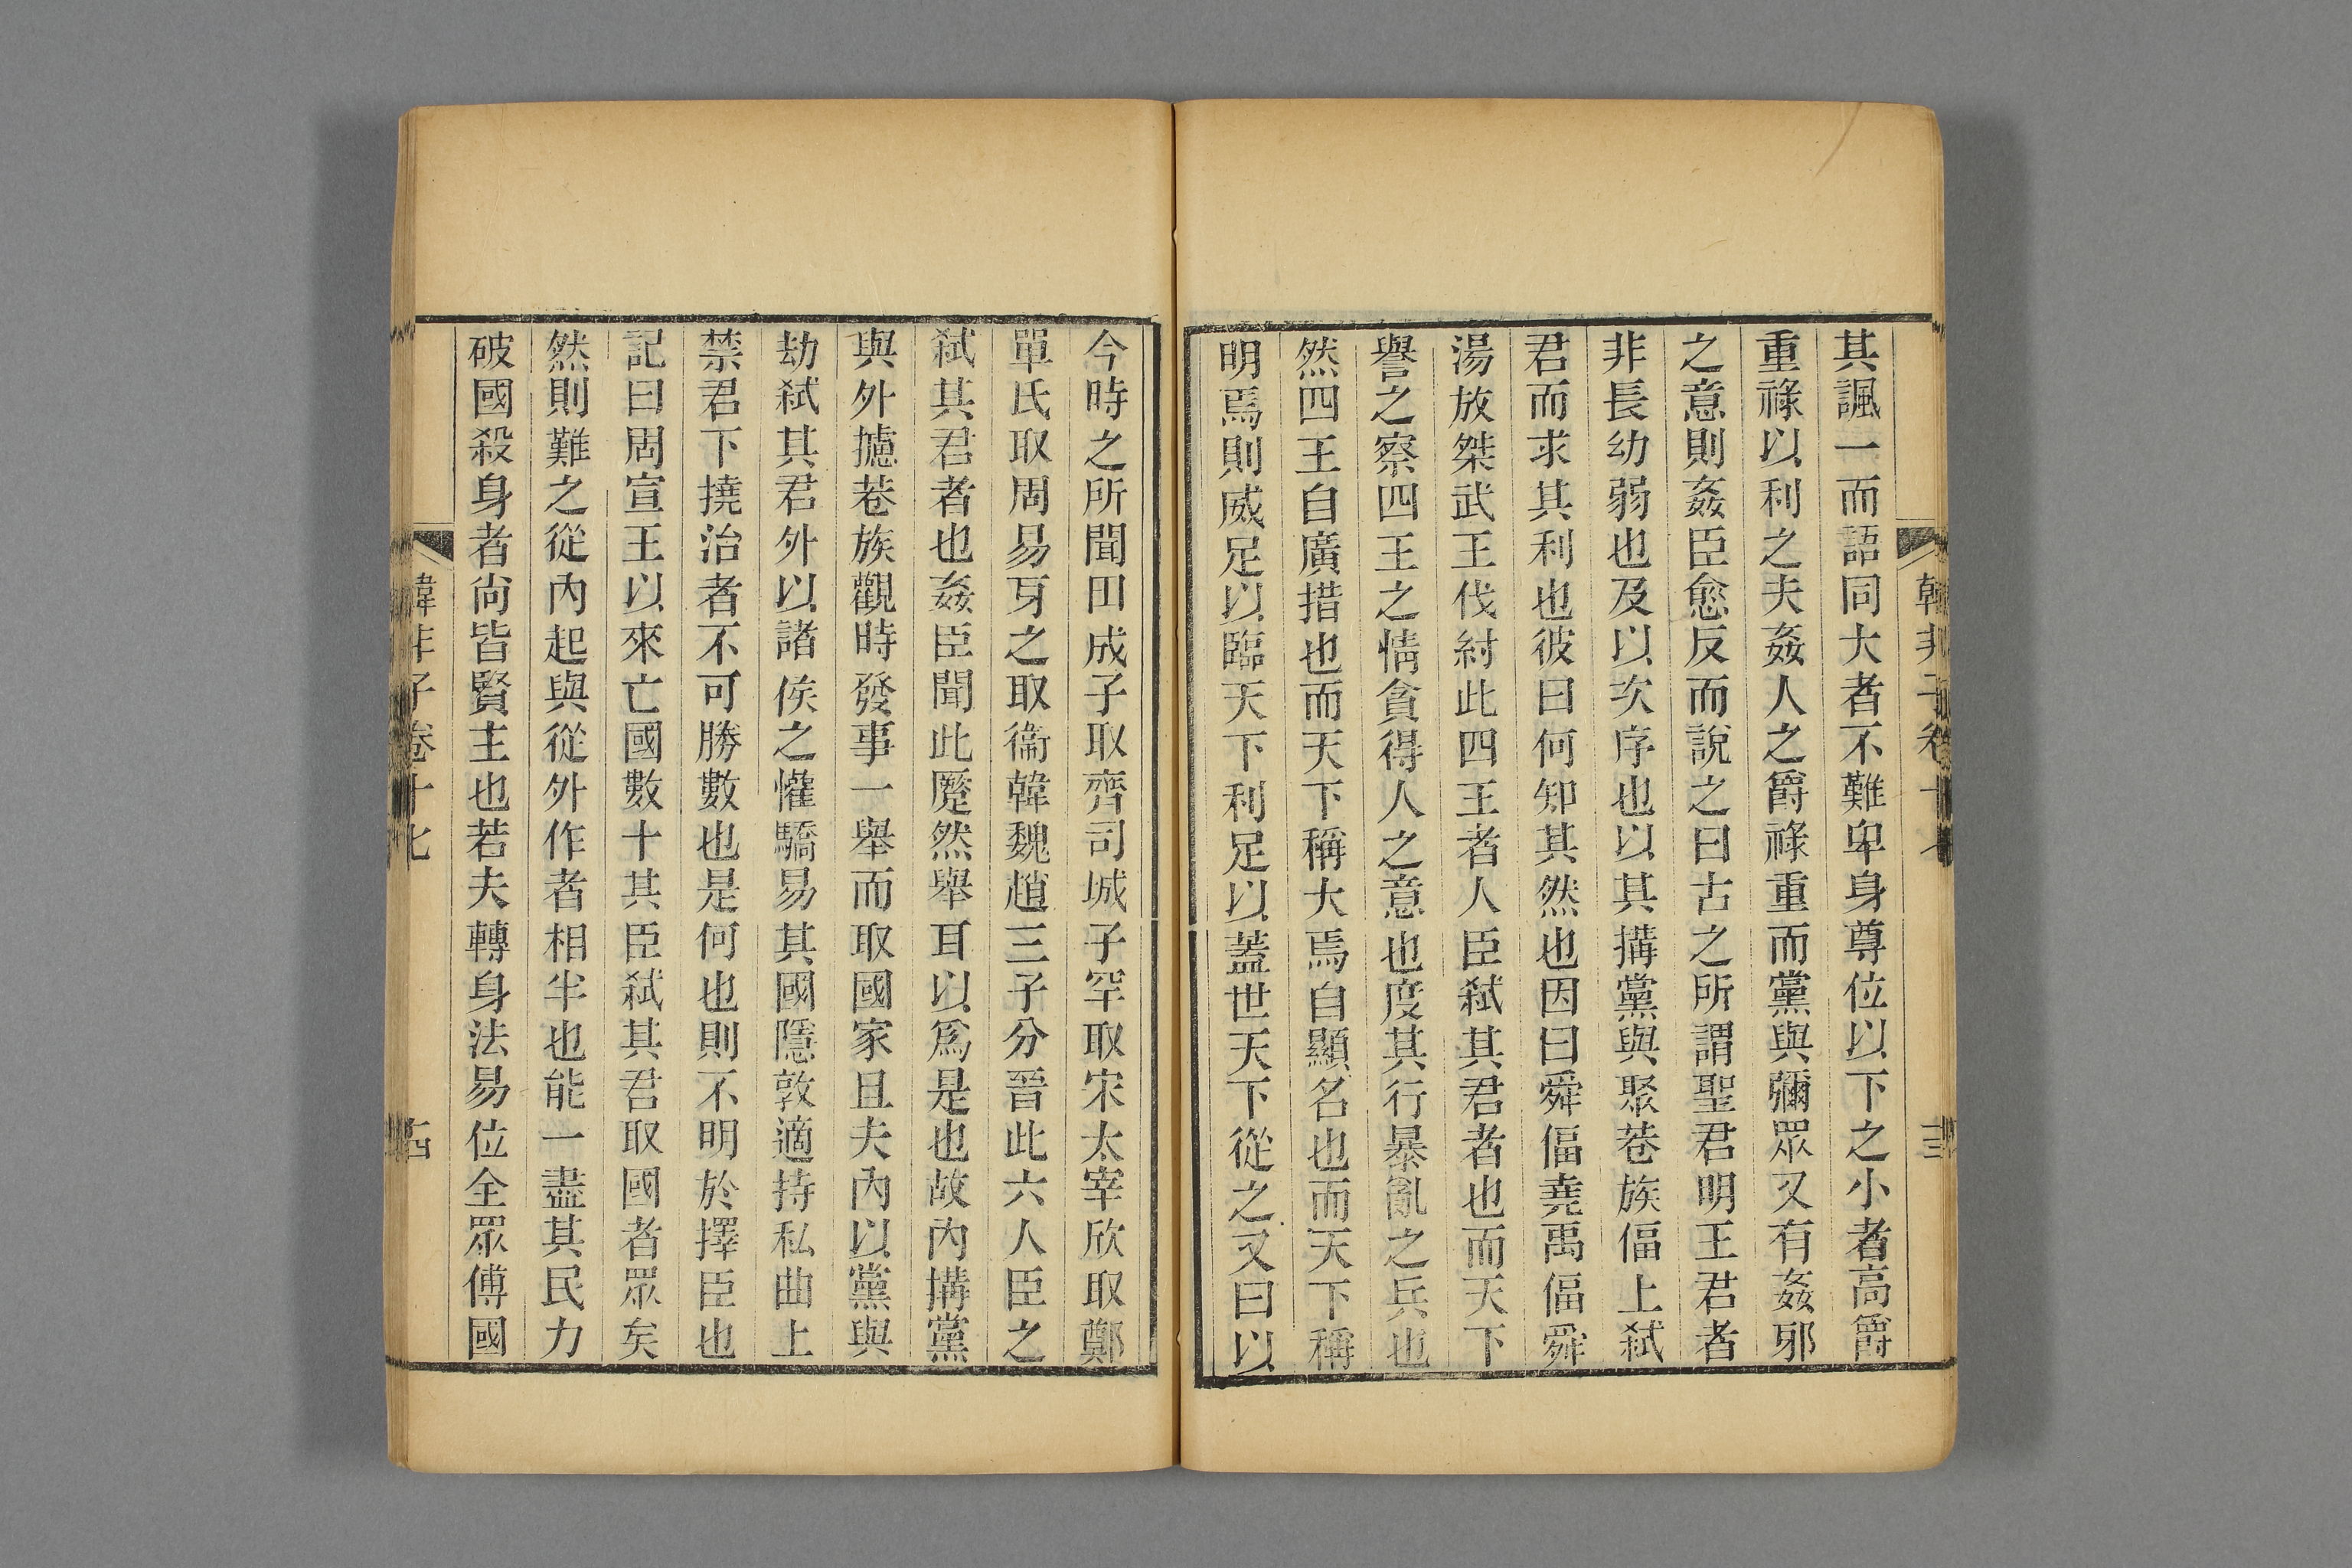 其諷一而語同大者不難卑身尊位以下之小者高爵
重祿以利之夫姦人之爵祿重而黨與彌眾又有姦邪
之意則姦臣愈反而說之曰古之所謂聖君明王君者
非長幼弱也及以次序也以其搆黨與聚巷族偪上弑
君而求其利也彼曰何知其然也因曰舜偪堯禹偪舜
湯放桀武王伐紂此四王者人臣弑其君者也而天下
譽之察四王之情貪得人之意也度其行暴亂之兵也
然四王自廣措也而天下稱大焉自顯名也而天下稱
明焉則威足以臨天下利足以蓋世天下從之又曰以
今時之所聞田成子取齊司城子罕取宋太宰欣取鄭
單氏取周易牙之取衞韓魏趙三子分晉此六人臣之
弑其君者也姦臣聞此蹷然舉耳以爲是也故內搆黨
與外攄巷族觀時發事一舉而取國家且夫內以黨與
劫弑其君外以諸侯之懽驕易其國隱敦適持私曲上
禁君下撓治者不可勝數也是何也則不明於擇臣也
記曰周宣王以來亡國數十其臣弑其君取國者眾矣
然則難之從內起與從外作者相半也能一盡其民力
破國殺身者尙皆賢主也若夫轉身法易位全眾傅國
韓非子卷十七
十四